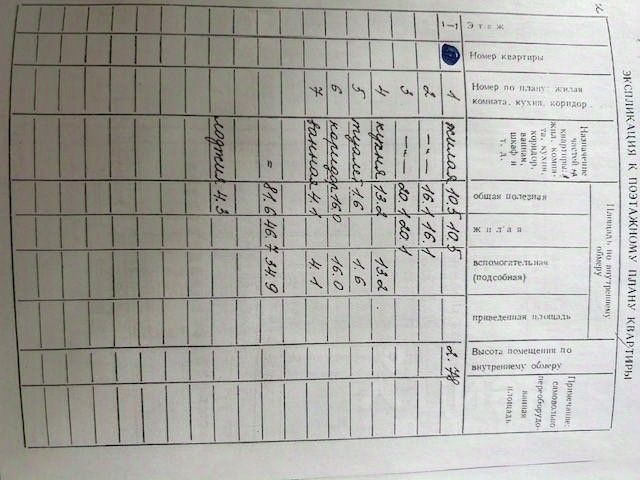 2
ЭКСПЛИКАЦИЯ К ПОЭТАЖНОМУ ПЛАНУ КВАРТИРЫ
Этаж
Номер квартиры
Номер по плану: жилая комната, кухня, коридор.
Назначение частей квартиры: жил. комната, кухня, коридор, ванная, шкаф и т. д.
Площадь по внутреннему обмеру
общая полезная
жилая
вспомогательная (подсобная)
приведенная площадь
Высота помещения по внутреннему обмеру
Примечание: самовольно переоборудованная площадь
1 жилая 10.5 10.5 2.78
2 —"— 16.1 16.1
3 —"— 20.1 20.1
4 кухня 13.2 13.2
5 туалет 1.6 1.6
6 коридор 16.0 16.0
7 ванная 4.1 4.1
= 81.6 46.7 34.9
лоджия 4.3